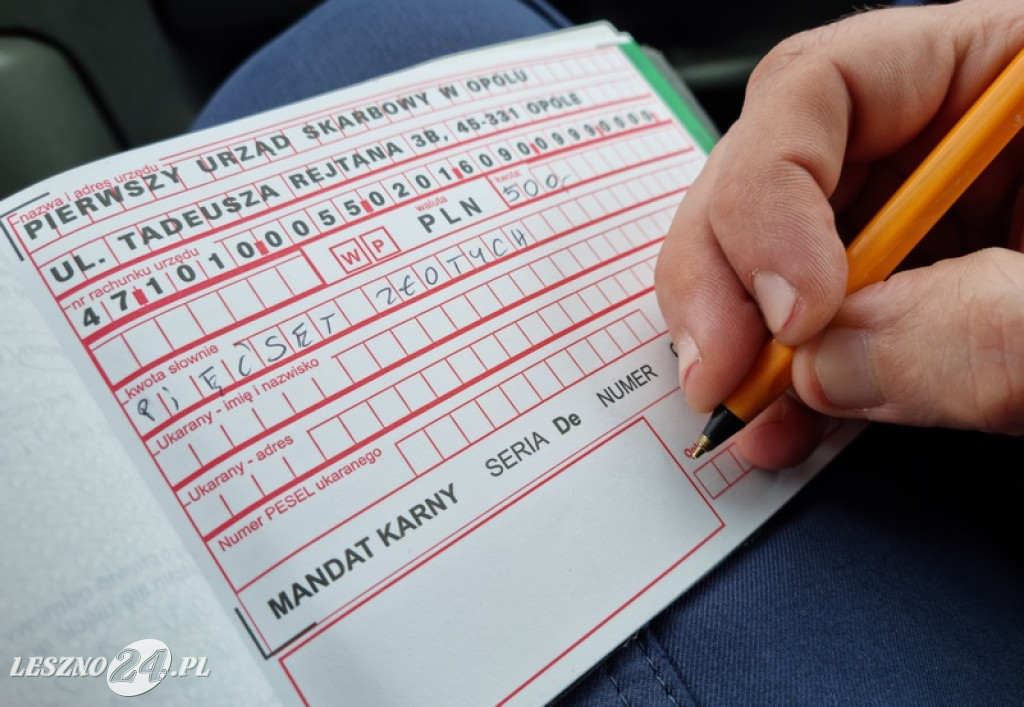 nazwa i adres urzędu
PIERWSZY URZĄD SKARBOWY W OPOLU
UL. TADEUSZA REJTANA 3B, 45-331 OPOLE
nr rachunku urzędu
47101000550201609009990000
W P waluta PLN kwota 500,-
kwota słownie
PIĘĆSET ZŁOTYCH
Ukarany - imię i nazwisko
Ukarany - adres
Numer PESEL ukaranego
MANDAT KARNY SERIA De NUMER
LESZNO24.PL